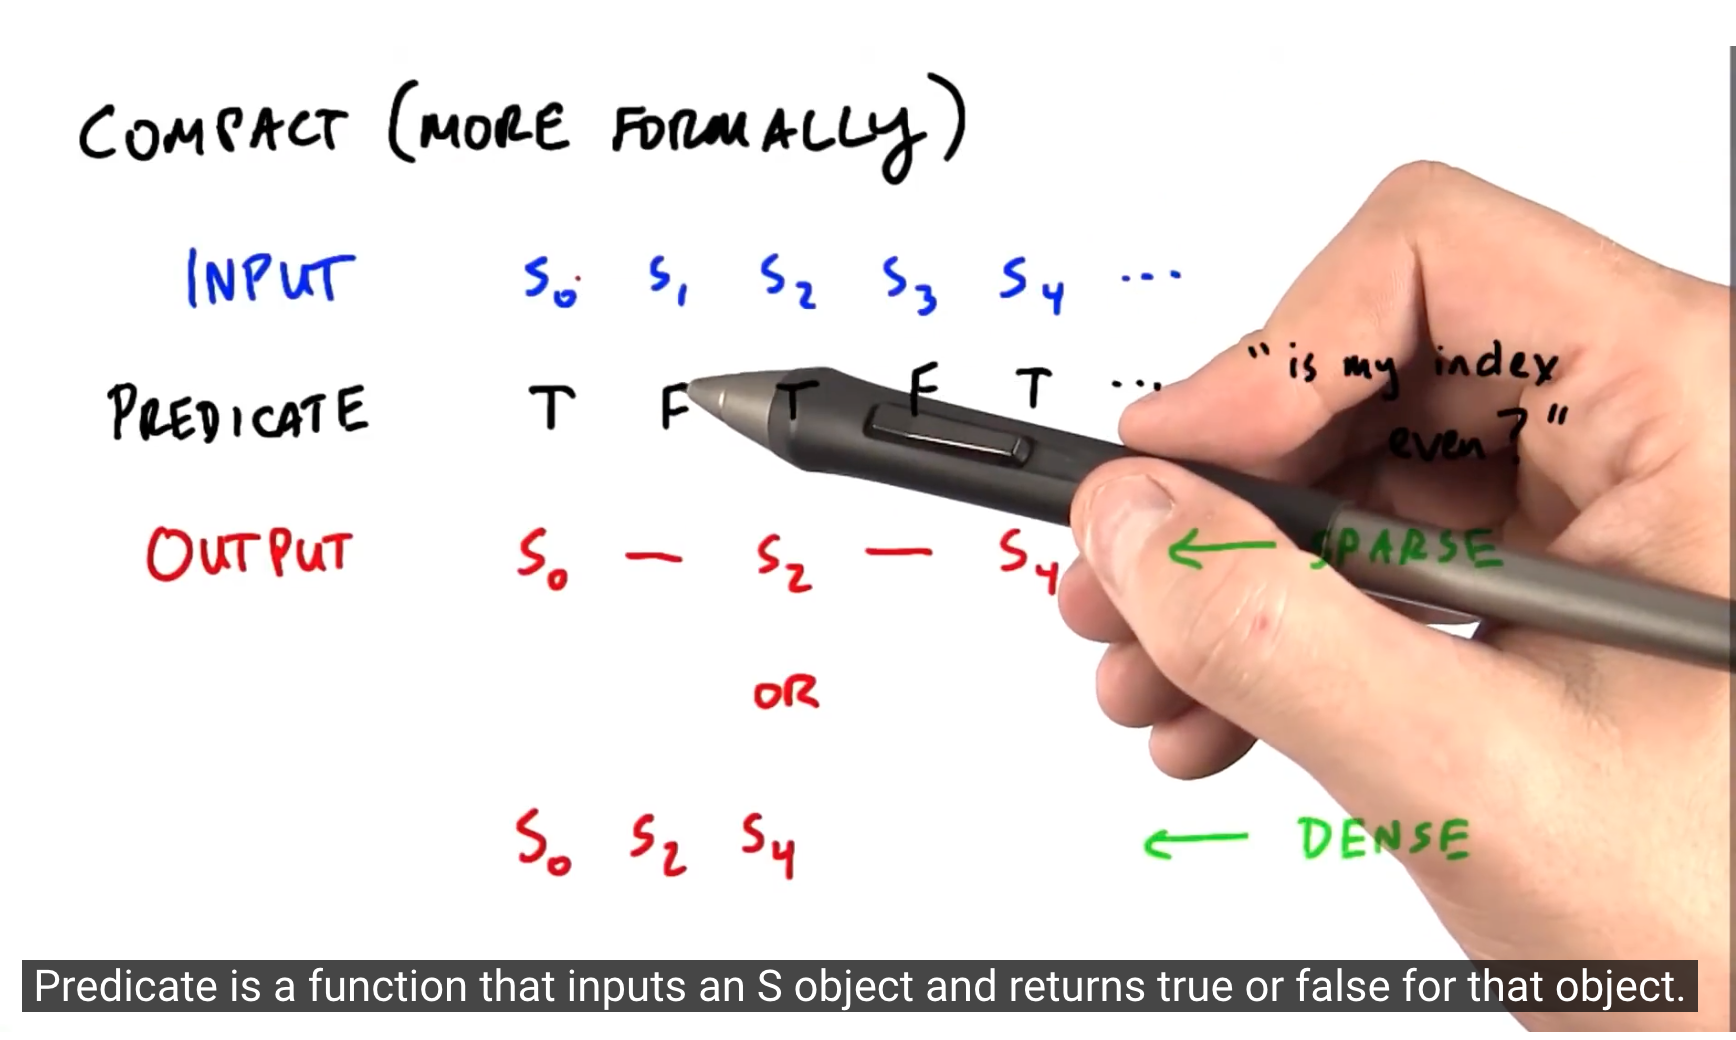 COMPACT (MORE FORMALLY)
INPUT S0 S1 S2 S3 S4 ...
PREDICATE T F T F T ... "is my index
even?"
OUTPUT S0 — S2 — S4 ← SPARSE
OR
S0 S2 S4 ← DENSE
Predicate is a function that inputs an S object and returns true or false for that object.